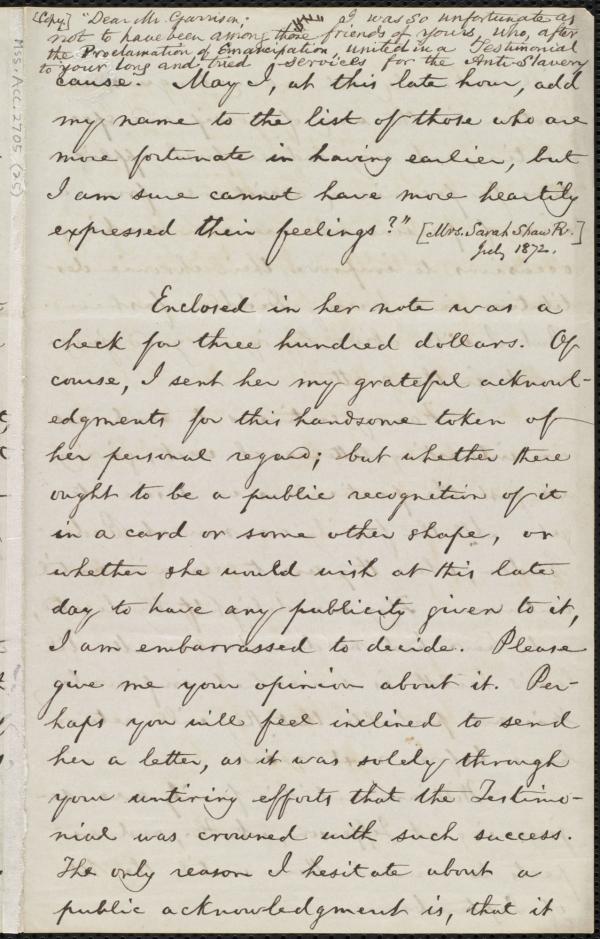 [Copy] "Dear Mr. Garrison; I was so unfortunate as
not to have been among those friends of yours, who, after
the Proclamation of Emancipation, united in a Testimonial
to your long and tried services for the Anti-Slavery
cause. May I, at this late hour, add
my name to the list of those who are
more fortunate in having earlier, but
I am sure cannot have more heartily
expressed their feelings?" [Mrs. Sarah Shaw R.]
July 1872.
Enclosed in her note was a
check for three hundred dollars. Of
course, I sent her my grateful acknowl-
edgments for this handsome token of
her personal regard; but whether there
ought to be a public recognition of it
in a card or some other shape, or
whether she would wish at this late
day to have any publicity given to it,
I am embarrassed to decide. Please
give me your opinion about it. Per-
haps you will feel inclined to send
her a letter, as it was solely through
your untiring efforts that the Testimo-
nial was crowned with such success.
The only reason I hesitate about a
public acknowledgment is, that it
Mss. Acc. 2705 (25)